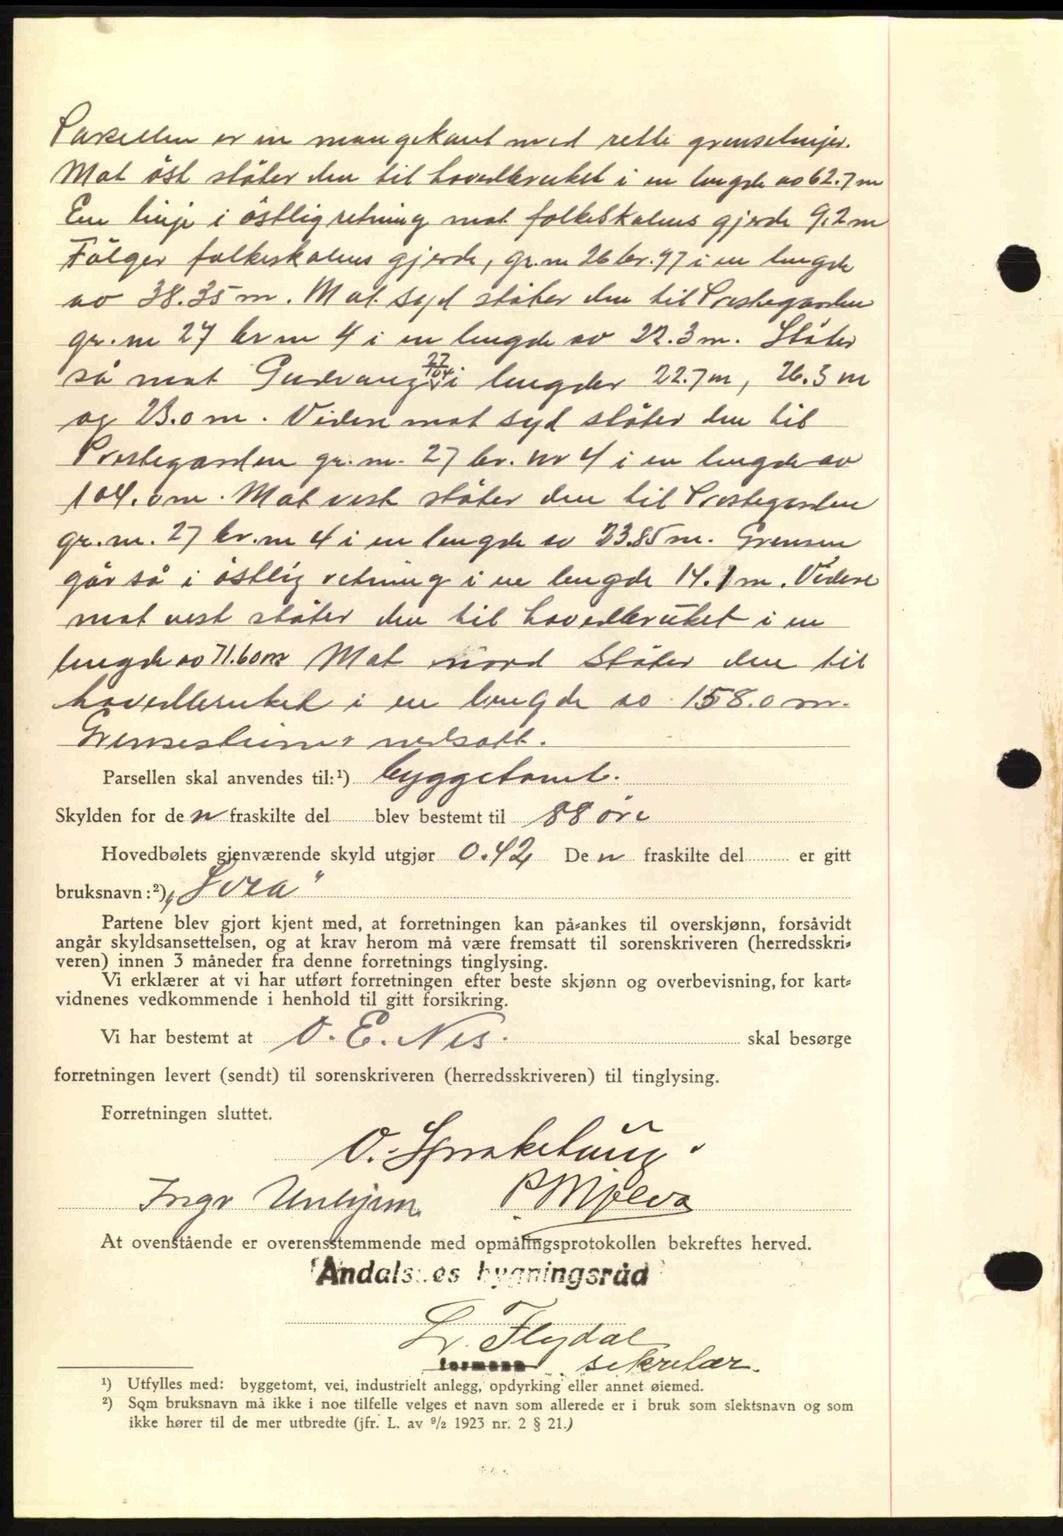 Parsellen er en mangekant med rette grenselinjer.
Mot öst stöter den til hovedbruket i en lengde av 62.7 m
En linje i östlig retning mot folkeskolens gjerde 9,2 m
Fölger folkeskolens gjerde, gr. nr 26 br. 97 i en lengde
av 38.35 m. Mot syd stöter den til Prestegarden
gr. nr 27 br nr 4 i en lengde av 22.3 m. Stöter
så mot 27/104 i lengder 22.7 m, 26.3 m
og 23.0 m. Videre mot syd stöter den til
Prestegarden gr. nr. 27 br. nr 4 i en lengde av
104.0 m. Mot vest stöter den til Prestegarden
gr. nr. 27 br. nr 4 i en lengde av 23.85 m. Grensen
går så i östlig retning i en lengde 14.1 m. Videre
mot vest stöter den til hovedbruket i en
lengde av 71.60 m Mot nord stöter den til
hovedbruket i en lengde av 158.0 m.
Grensesteiner nedsatt.
Parsellen skal anvendes til:¹) byggetomt.
Skylden for den fraskilte del blev bestemt til 88 öre
Hovedbølets gjenværende skyld utgjør 0.42 Den fraskilte del er gitt
bruksnavn:²) „Svea"
Partene blev gjort kjent med, at forretningen kan på-ankes til overskjønn, forsåvidt
angår skyldsansettelsen, og at krav herom må være fremsatt til sorenskriveren (herredsskri-
veren) innen 3 måneder fra denne forretnings tinglysing.
Vi erklærer at vi har utført forretningen efter beste skjønn og overbevisning, for kart-
vidnenes vedkommende i henhold til gitt forsikring.
Vi har bestemt at O. E. Nes. skal besørge
forretningen levert (sendt) til sorenskriveren (herredsskriveren) til tinglysing.
Forretningen sluttet.
O.
P. Mjelva
At ovenstående er overensstemmende med opmålingsprotokollen bekreftes herved.
Åndalsnes bygningsråd
Flydal
formann sekretær.
¹) Utfylles med: byggetomt, vei, industrielt anlegg, opdyrking eller annet øiemed.
²) Som bruksnavn må ikke i noe tilfelle velges et navn som allerede er i bruk som slektsnavn og som
ikke hører til de mer utbredte (jfr. L. av 9/2 1923 nr. 2 § 21.)